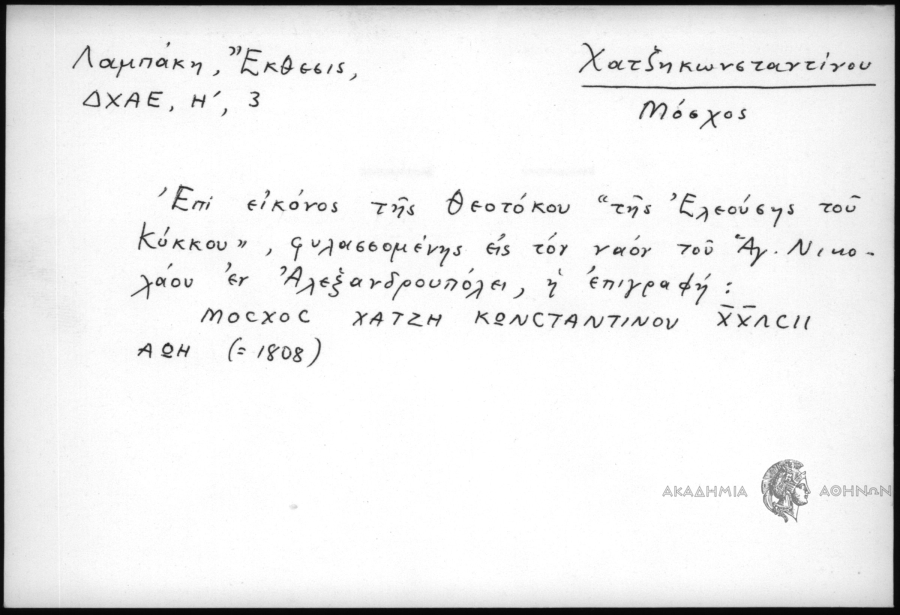 Λαμπάκη, Ἔκθεσις,
ΔΧΑΕ, Η´, 3
Χατζηκωνσταντίνου
Μόσχος
Ἐπί εἰκόνος τῆς Θεοτόκου "τῆς Ἐλεούσης τοῦ
Κύκκου", φυλασσομένης εἰς τόν ναόν τοῦ Ἁγ. Νικο-
λάου ἐν Ἀλεξανδρουπόλει, ἡ ἐπιγραφή:
ΜΟCΧΟC ΧΑΤΖΗ ΚΩΝCΤΑΝΤΙΝΟΥ
ΑΩΗ (=1808)
ΑΚΑΔΗΜΙΑ ΑΘΗΝΩΝ